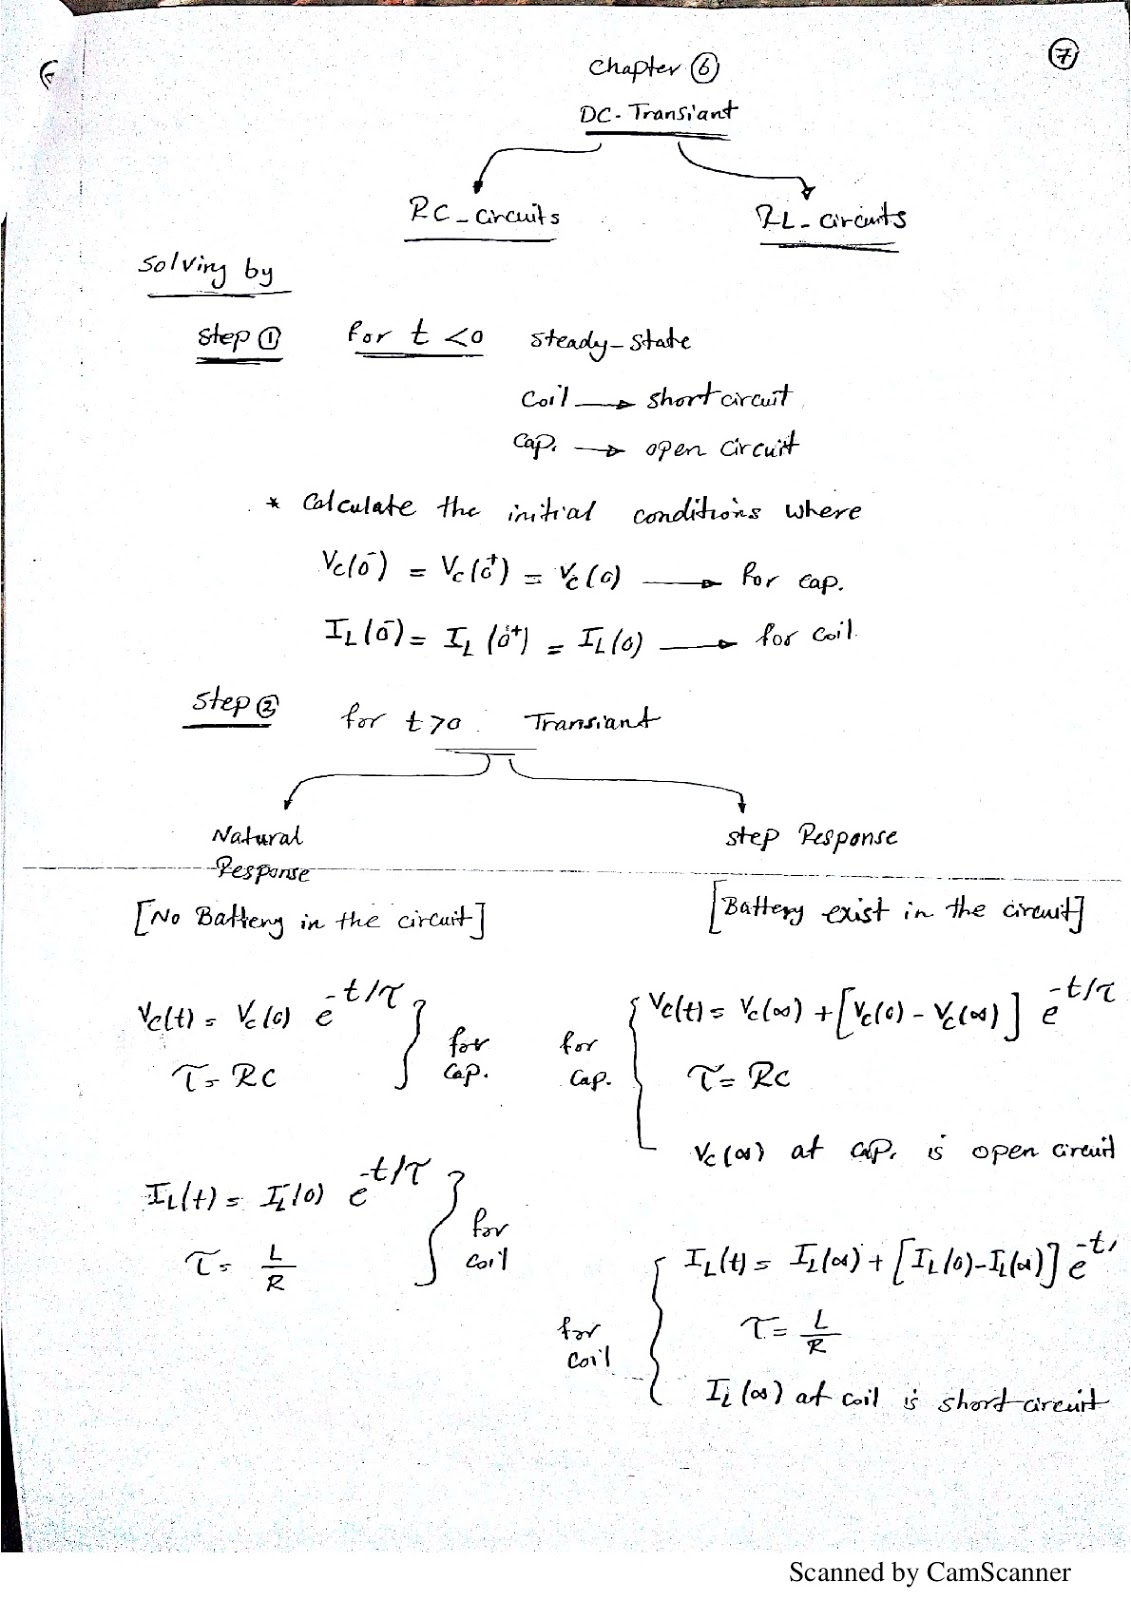 ⑦
chapter ⑥
DC-Transiant
RC-circuits
RL-circuits
Solving by
step ①
for t <0 steady-state
Coil → short circuit
Cap. → open circuit
* Calculate the initial conditions where
Vc(0⁻) = Vc(0⁺) = Vc(0) → for cap.
I_L(0⁻) = I_L(0⁺) = I_L(0) → for coil
Step ②
for t>0 Transiant
Natural
Response
step Response
[No Battery in the circuit]
[Battery exist in the circuit]
Vc(t) = Vc(0) e^-t/τ
τ = RC
for
cap.
for
cap.
Vc(t) = Vc(∞) + [Vc(0) - Vc(∞)] e^-t/τ
τ = RC
Vc(∞) at cap. is open circuit
I_L(t) = I_L(0) e^-t/τ
τ = L/R
for
coil
for
coil
I_L(t) = I_L(∞) + [I_L(0) - I_L(∞)] e^-t/
τ = L/R
I_L(∞) at coil is short circuit
Scanned by CamScanner